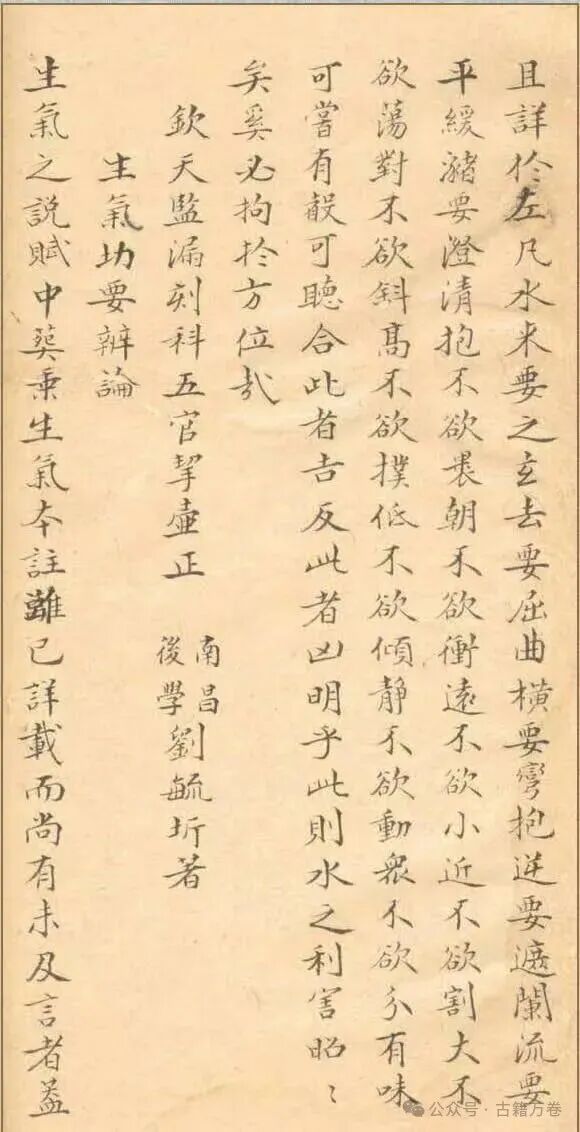 且詳於左凡水来要之玄去要屈曲横要彎抱逆要遮闌流要
平緩瀦要澄清抱不欲裹朝不欲衝遠不欲小近不欲割大不
欲蕩對不欲斜髙不欲撲低不欲傾静不欲動衆不欲分有味
可嘗有聲可聽合此者吉反此者凶明乎此則水之利害昭〻
矣奚必拘於方位哉
欽天監漏刻科五官挈壷正 南昌後學劉毓圻著
生氣切要辨論
生氣之説賦中葬乗生氣本註雖已詳載而尚有未及言者蓋
公众号·古籍万卷